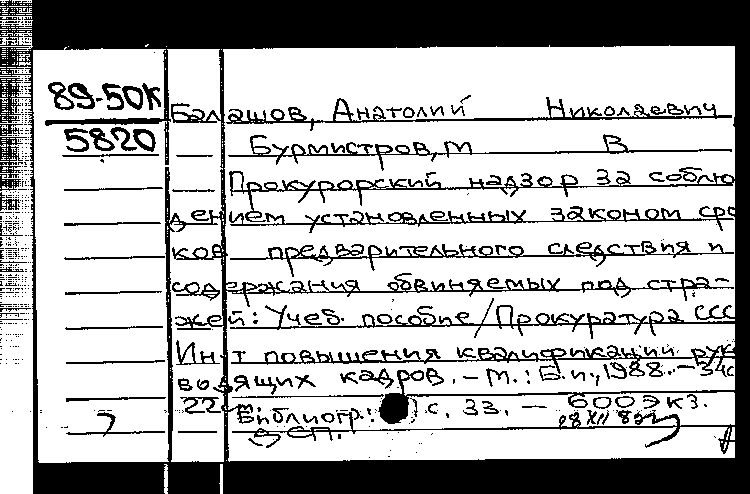 89-50К
5820
Балашов, Анатолий Николаевич
Бурмистров, М В
Прокурорский надзор за соблю
дением установленных законом сро
ков предварительного следствия и
содержания обвиняемых под стра-
жей: Учеб. пособие/Прокуратура ССС
Ин-т повышения квалификации рук
водящих кадров. - М.: Б.и., 1988. - 34с
22см.
Библиогр.: с. 33. - 600 экз.
ДСП.